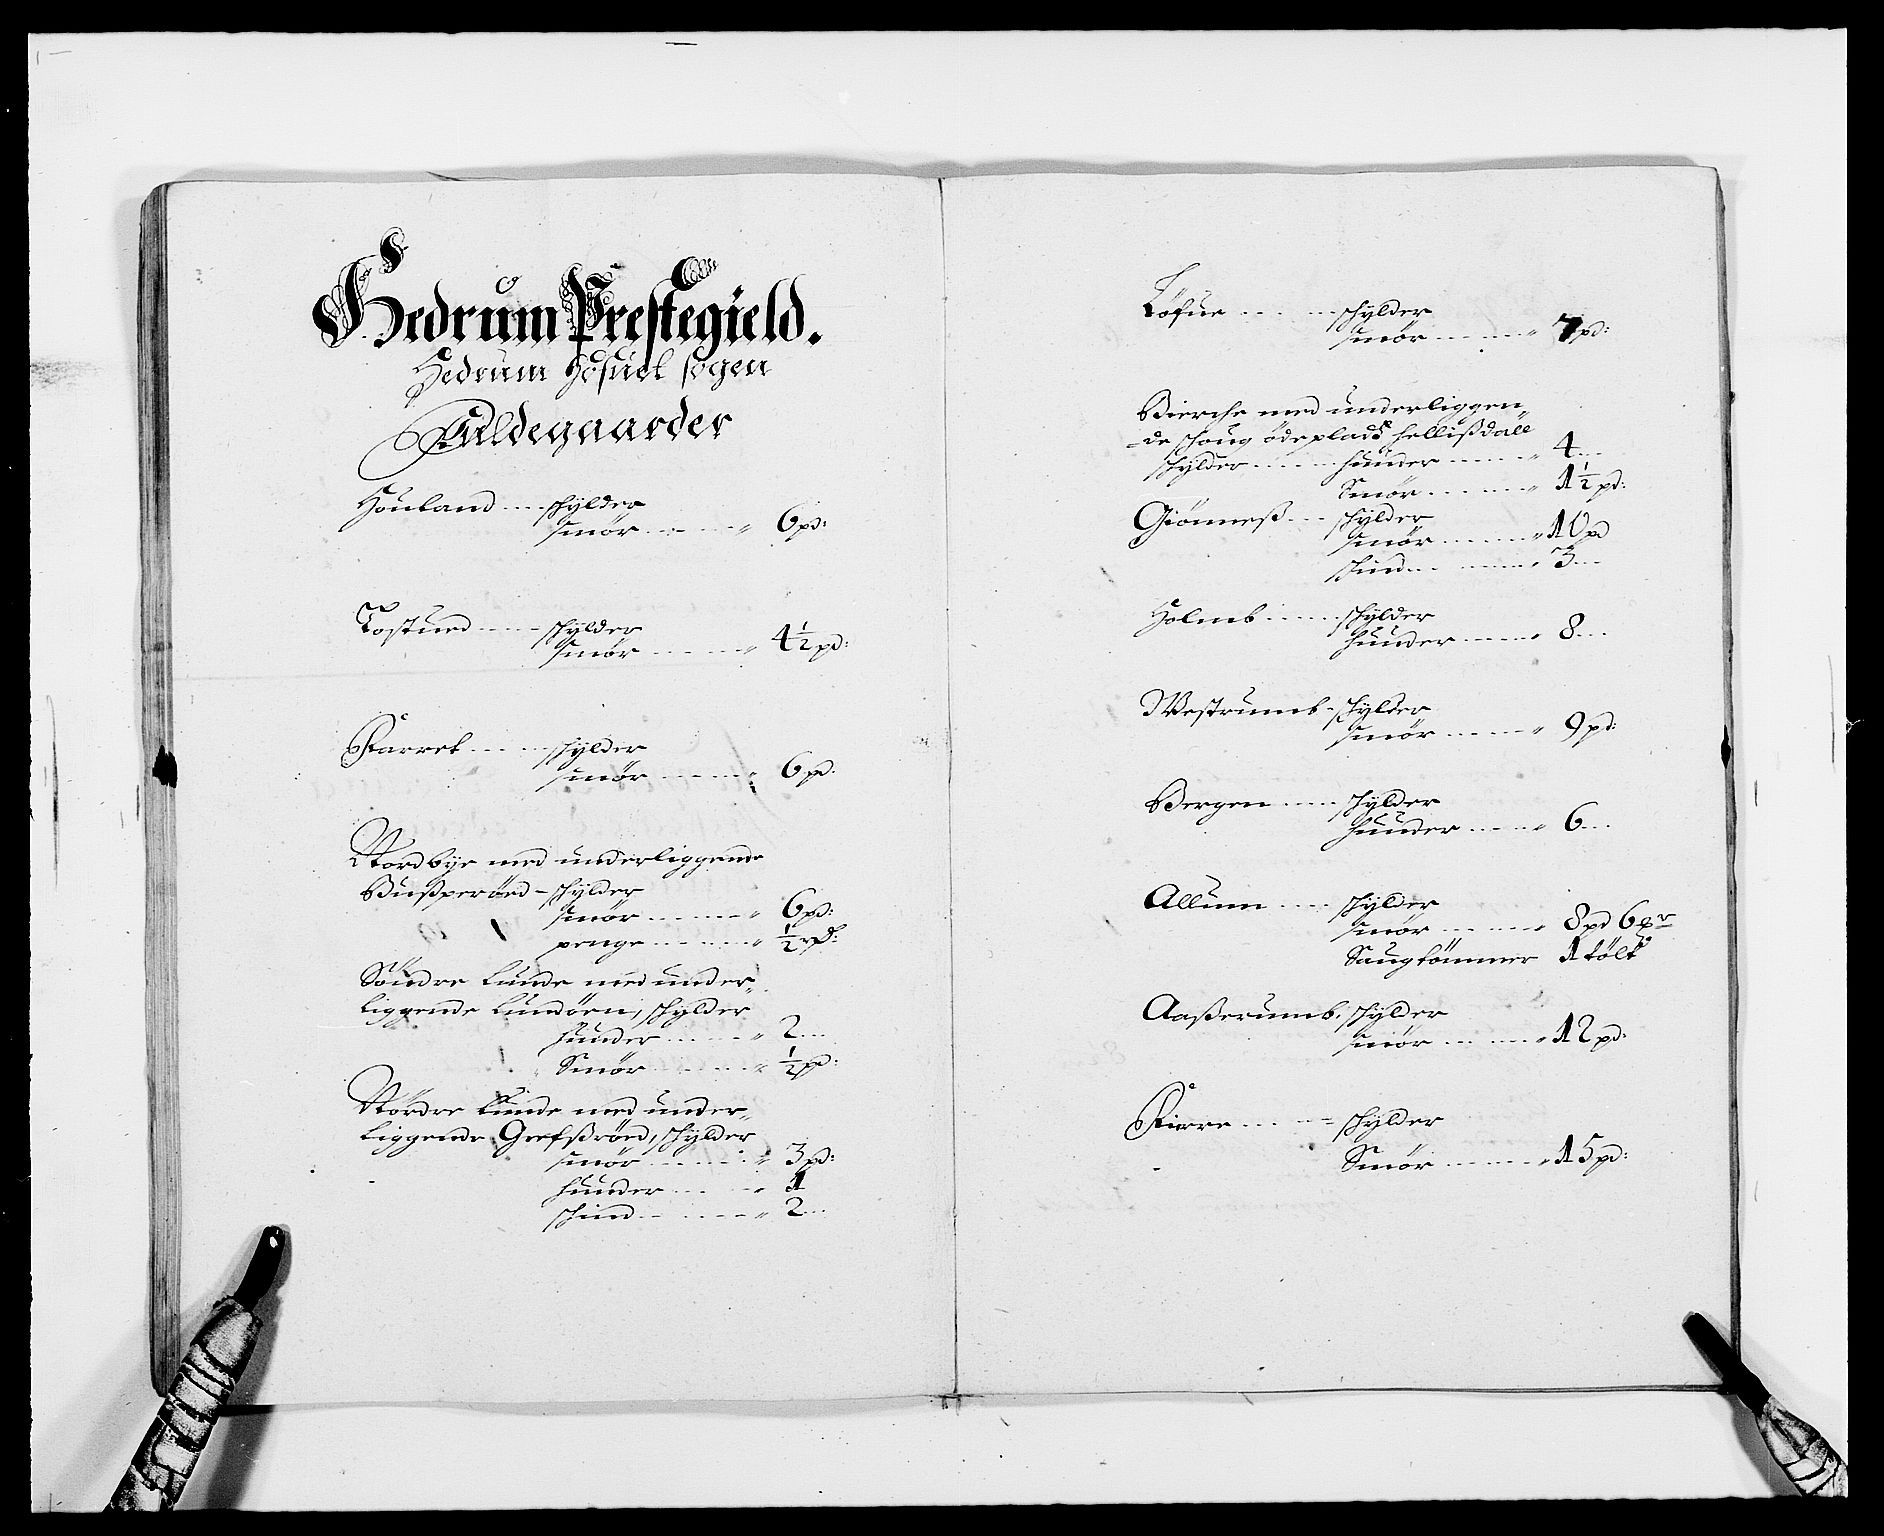 Hedrum Prestegield.
Hedrum Hofuet sogen
Fuldegaarder
Houland - - - schylder
smør - - - - - " 6 pd:
Tostued - - - - schylder
smør - - - - - " 4½ pd:
Farret - - - - schylder
smør - - - - - " 6 pd:
Nordbye med underliggende
Bußperöed - schylder
smør - - - - - " 6 pd:
penge - - - - - " ½ rd:
Söndre Lunde med under„
liggende Lundöen, schylder
huuder - - - - " 2 - -
Smør - - - - - " ½ pd:
Nördre Lunde med under„
liggende Grefßröed, schylder
smør - - - - - " 3 pd:
huuder - - - - " 1
schind - - - - " 2 - -
Löfue - - - - schylder
smør - - - - - " 7 pd:
Bierche med underliggen„
=de schoug ödeplads hellißdall
schylder - - - - huuder - - - - " 4 - -
Smør - - - - - " 1½ pd:
Giönneß - - - schylder
smør - - - - - " 10 pd
schind - - - - - " 3 - -
Holmb - - - - schylder
huuder - - - - " 8 - -
Westrumb - schylder
smør - - - - - " 9 pd:
Bergen - - - - schylder
huuder - - - - " 6 - -
Allum - - - - schylder
smør - - - - - " 8 pd 6
Saugtömmer 1 tölt
Aaßerumb, schylder
smør - - - - - " 12 pd:
Fierre - - - - = schylder
Smør - - - - - " 15 pd: